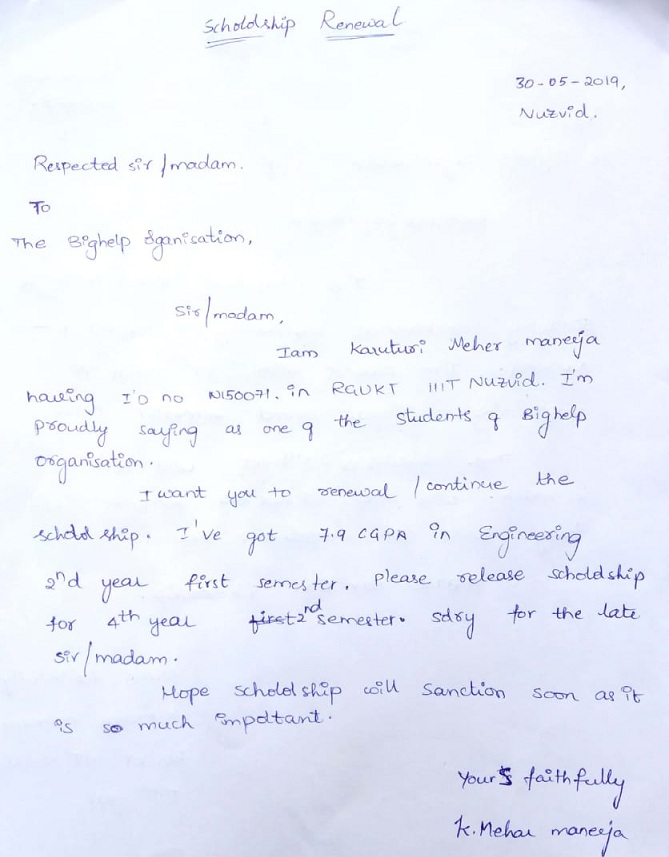 Scholdship Renewal
30-05-2019,
Nuzvid.
Respected sir/madam.
To
The Bighelp organisation,
Sir/madam,
Iam Karuturi Meher maneeja
having I'D no N150071. in RGUKT IIIT Nuzvid. I'm
proudly saying as one of the students of Bighelp
organisation.
I want you to renewal /continue the
scholdship. I've got 7.9 CGPA in Engineering
2nd year first semester. please release scholdship
for 4th year first 2nd semester. sdry for the late
sir/madam.
Hope scholdship will sanction soon as it
is so much impdtant.
Yours faithfully
K. Mehar maneeja